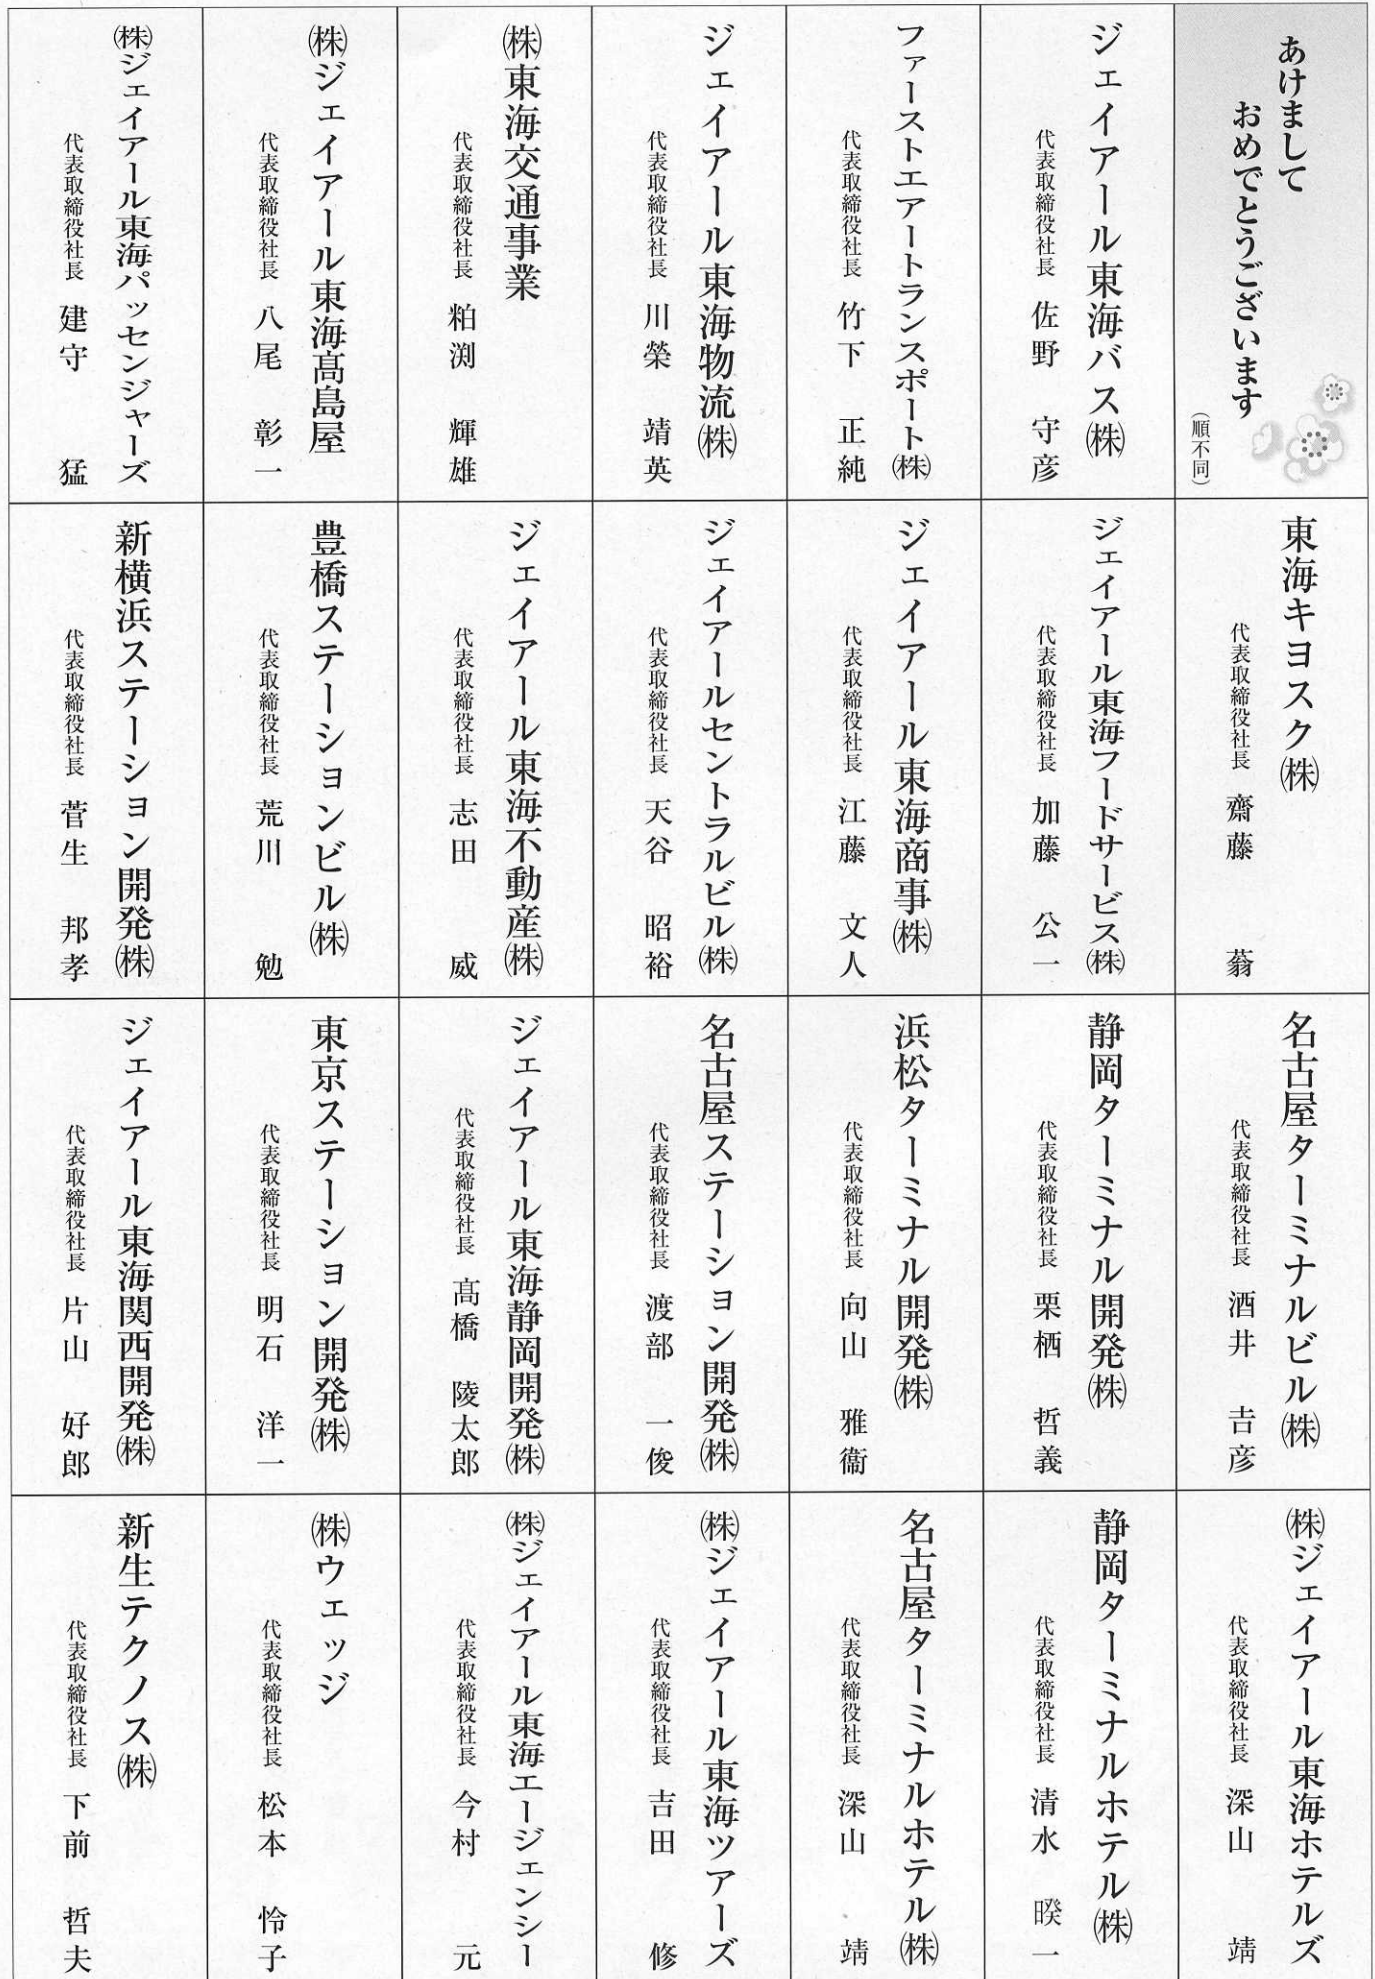 あけまして
おめでとうございます
(順不同)
ジェイアール東海バス㈱
代表取締役社長 佐野 守彦
ファーストエアートランスポート㈱
代表取締役社長 竹下 正純
ジェイアール東海物流㈱
代表取締役社長 川榮 靖英
㈱東海交通事業
代表取締役社長 粕渕 輝雄
㈱ジェイアール東海髙島屋
代表取締役社長 八尾 彰一
㈱ジェイアール東海パッセンジャーズ
代表取締役社長 建守 猛
東海キヨスク㈱
代表取締役社長 齋藤 蓊
ジェイアール東海フードサービス㈱
代表取締役社長 加藤 公一
ジェイアール東海商事㈱
代表取締役社長 江藤 文人
ジェイアールセントラルビル㈱
代表取締役社長 天谷 昭裕
ジェイアール東海不動産㈱
代表取締役社長 志田 威
豊橋ステーションビル㈱
代表取締役社長 荒川 勉
新横浜ステーション開発㈱
代表取締役社長 菅生 邦孝
名古屋ターミナルビル㈱
代表取締役社長 酒井 吉彦
静岡ターミナル開発㈱
代表取締役社長 栗栖 哲義
浜松ターミナル開発㈱
代表取締役社長 向山 雅衞
名古屋ステーション開発㈱
代表取締役社長 渡部 一俊
ジェイアール東海静岡開発㈱
代表取締役社長 髙橋 陵太郎
東京ステーション開発㈱
代表取締役社長 明石 洋一
ジェイアール東海関西開発㈱
代表取締役社長 片山 好郎
㈱ジェイアール東海ホテルズ
代表取締役社長 深山 靖
静岡ターミナルホテル㈱
代表取締役社長 清水 暌一
名古屋ターミナルホテル㈱
代表取締役社長 深山 靖
㈱ジェイアール東海ツアーズ
代表取締役社長 吉田 修
㈱ジェイアール東海エージェンシー
代表取締役社長 今村 元
㈱ウェッジ
代表取締役社長 松本 怜子
新生テクノス㈱
代表取締役社長 下前 哲夫